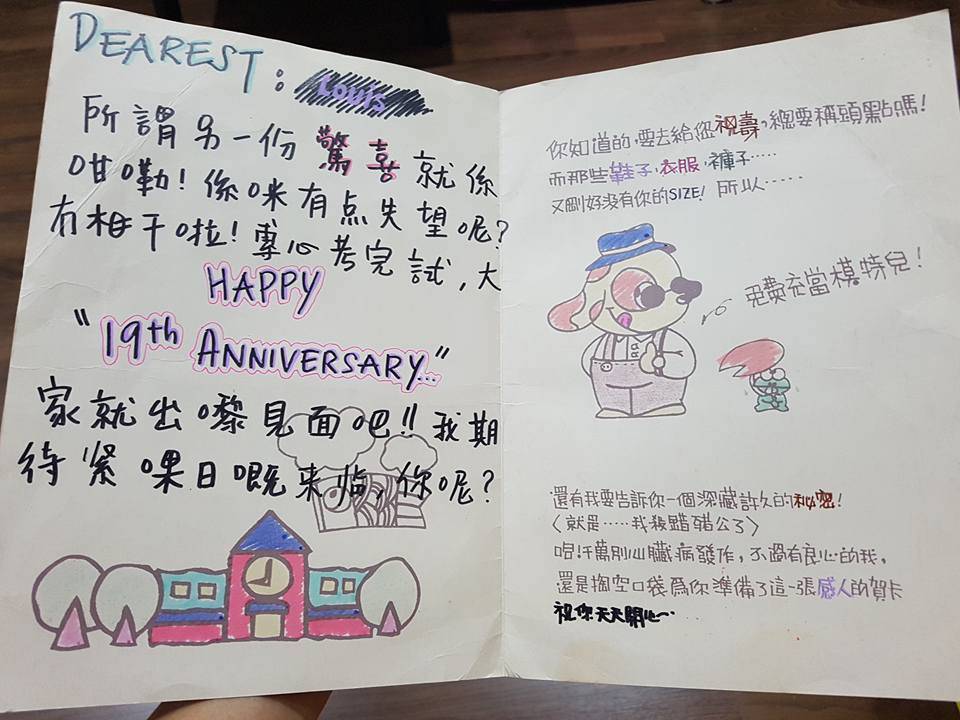 DEAREST : Louis
所謂另一份驚喜就係
咁嘞！係咪有点失望呢？
冇相干啦！專心考完試，大
HAPPY
"19th ANNIVERSARY..."
家就出嚟見面吧!! 我期
待緊嗰日嘅来臨，你呢？
你知道的，要去給您祝壽，總要稱頭點嗎！
而那些鞋子，衣服，褲子.....
又剛好沒有你的SIZE！所以.....
免費充當模特兒！
還有我要告訴你一個深藏許久的秘密！
〈就是.....我殺豬公了〉
千萬別心臟病發作，不過有良心的我，
還是掏空口袋為你準備了這一張感人的賀卡
祝你天天開心…